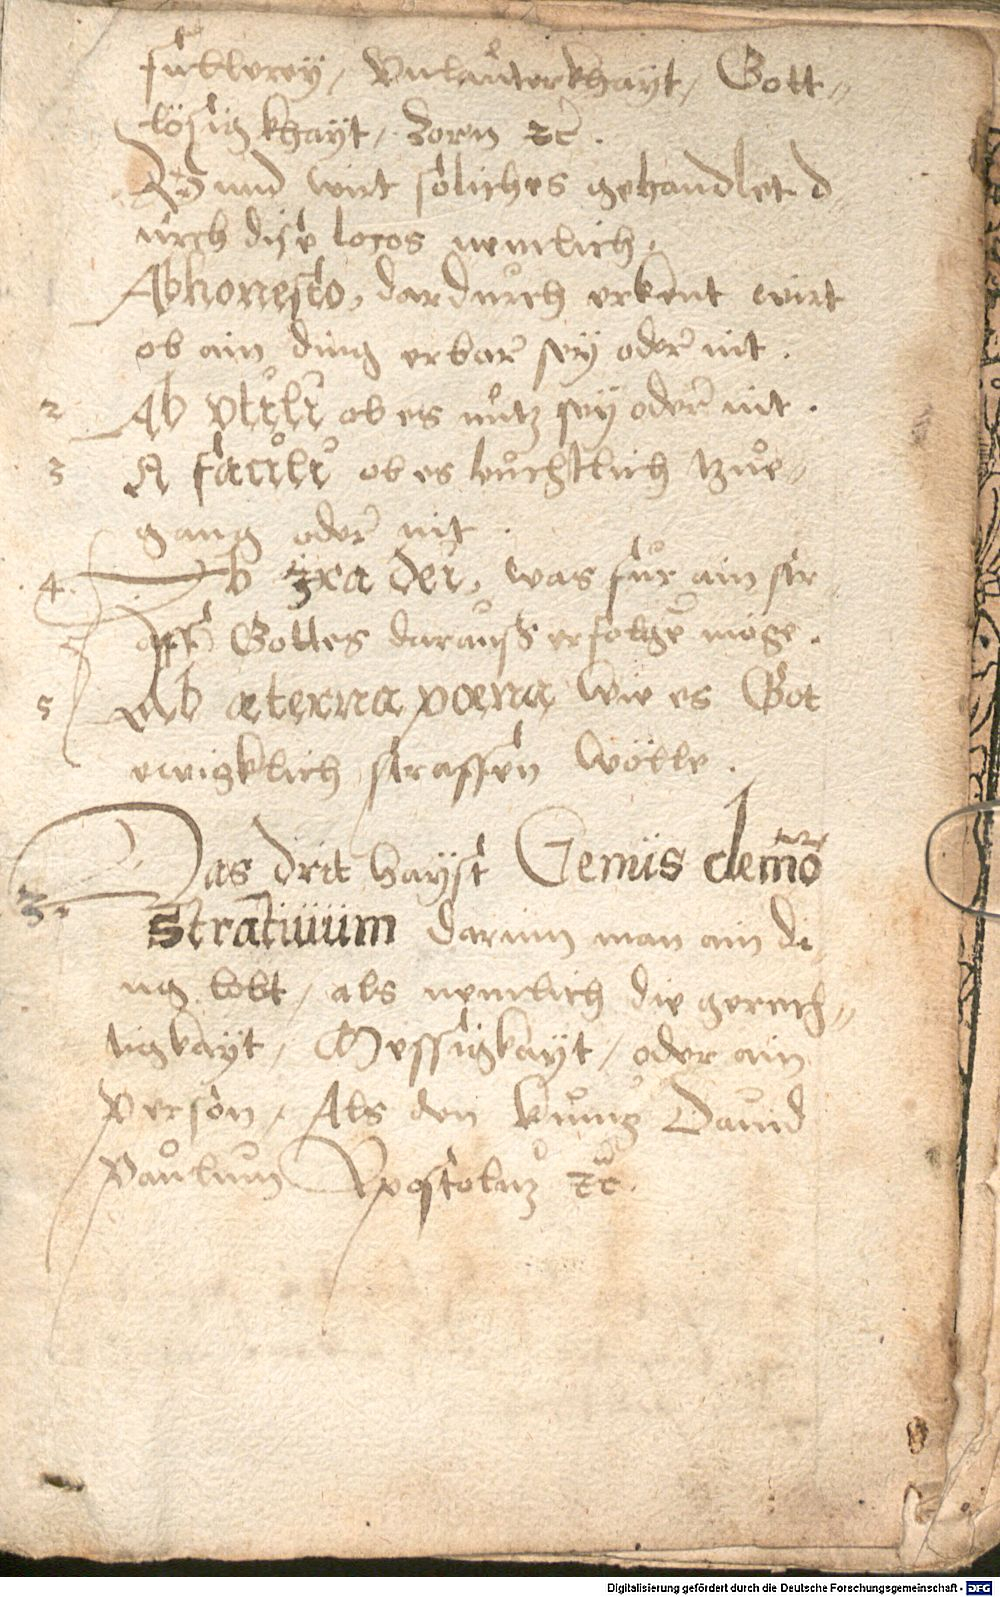 fúllerey, Vnlaúterkhayt, Gott-
lösigkhayt, zorn ꝛc.
Vnnd wirt söliches gehandlet d
úrch dise locos nemlich,
Ab honesto, dardúrch erkent wirt
ob ain ding erbar sey oder nit.
2 Ab vtili ob es nútz sey oder nit.
3 A facili ob es leúchtlich tzúe-
gang oder nit.
4. Ab ira dei, was fúr ain str
aff Gottes daraúß erfolgē möge.
5 Ab æterna pœna, wie es Got
ewigklich straffen wölle.
3. Das drit hayst Genus demō
stratiuum darinn man ain di
ng lobt, als nemlich die gerech-
tigkayt, Messigkayt, oder ain
person, Als den kúnig Dauid
Paúlum Apostolum ꝛc.
Digitalisierung gefördert durch die Deutsche Forschungsgemeinschaft - DFG